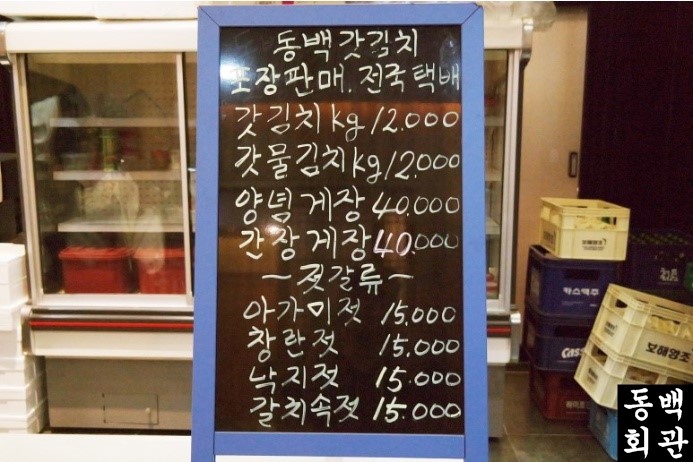 동백갓김치
포장판매. 전국택배
갓김치 kg 12.000
갓물김치 kg 12.000
양념게장 40.000
간장게장 40.000
~젓갈류~
아가미젓 15.000
창란젓 15.000
낙지젓 15.000
갈치속젓 15.000
보해양조
카스맥주
Cass
보해양조
동백
회관